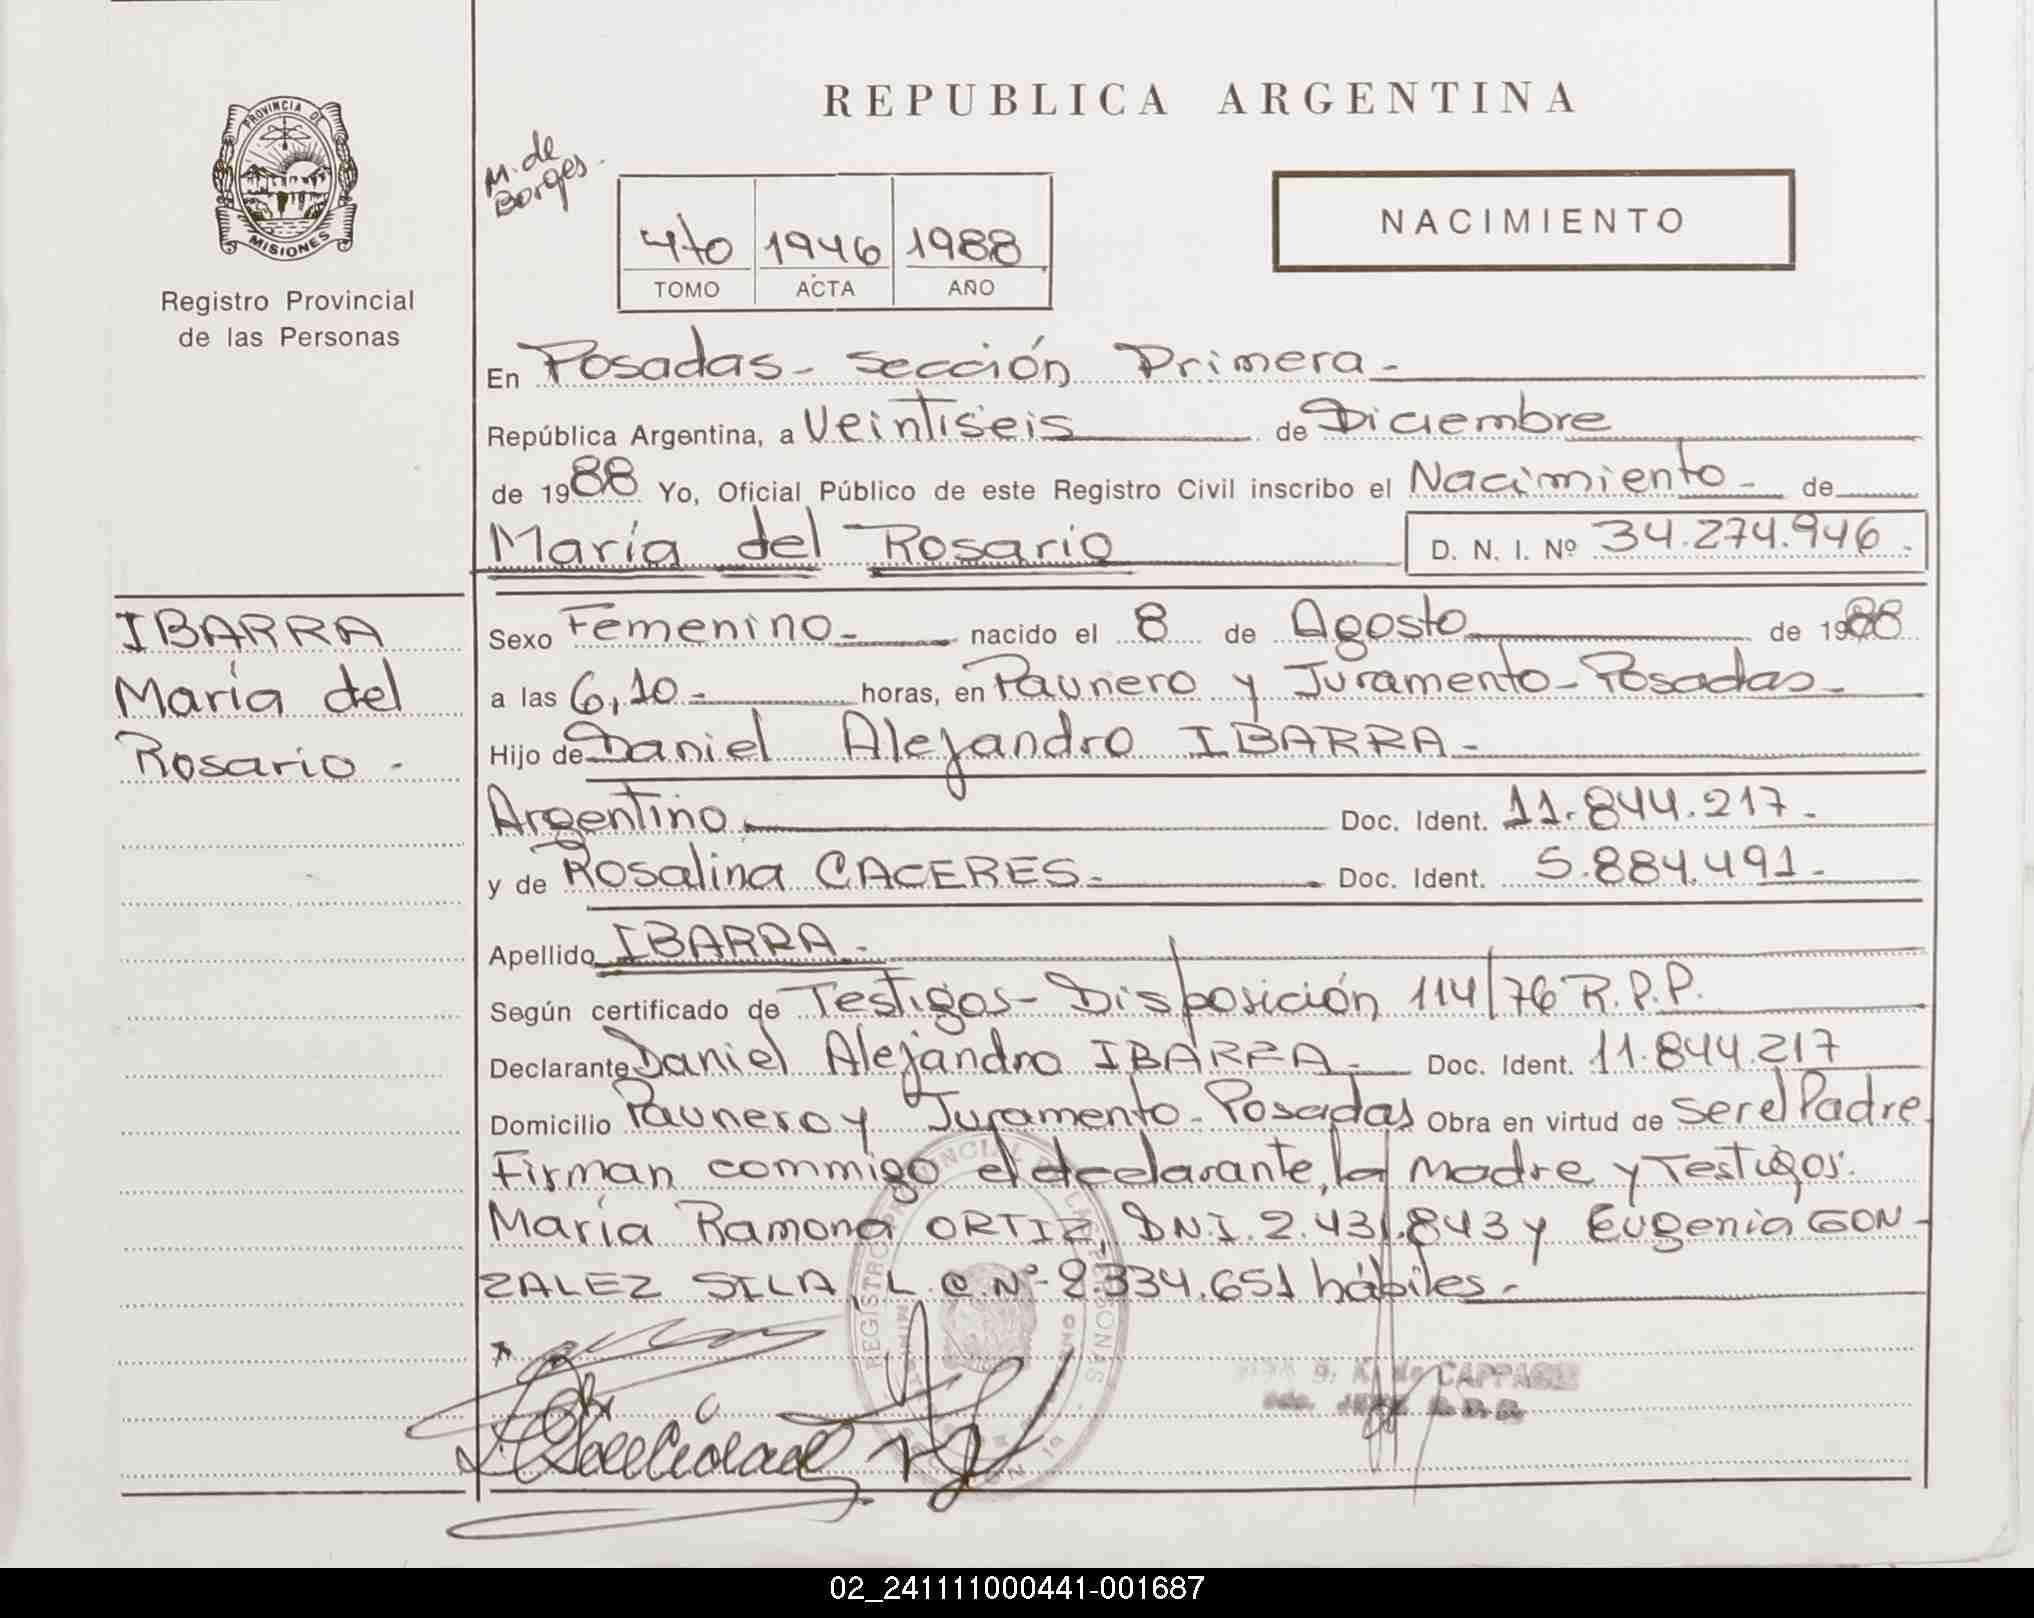 REPUBLICA ARGENTINA
PROVINCIA DE
MISIONES
Registro Provincial
de las Personas
M. de
Borges.
4to 1946 1988
TOMO ACTA AÑO
NACIMIENTO
En Posadas - Sección Primera -
República Argentina, a Veintiseis de Diciembre
de 1988 Yo, Oficial Público de este Registro Civil inscribo el Nacimiento - de
María del Rosario D. N. I. Nº 34.274.946.
IBARRA
María del
Rosario -
Sexo Femenino - nacido el 8 de Agosto de 1988
a las 6,10 - horas, en Paunero y Juramento - Posadas -
Hijo de Daniel Alejandro IBARRA -
Argentino Doc. Ident. 11.844.217.
y de Rosalina CACERES. Doc. Ident. 5.884.491.
Apellido IBARRA.
Según certificado de Testigos - Disposición 114/76 R.P.P.
Declarante Daniel Alejandro IBARRA - Doc. Ident. 11.844.217
Domicilio Paunero y Juramento - Posadas Obra en virtud de ser el Padre
Firman commigo el declarante, la Madre y Testigos.
María Ramona ORTIZ, DN.I. 2.431.843 y Eugenia GON-
ZALEZ SILA, L.C. Nº 2.334.651 hábiles -
K. de CAPPAGLI
02_241111000441-001687